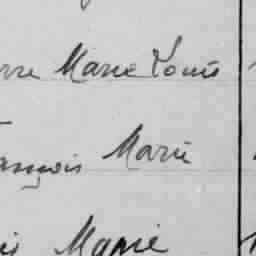 rre Marie Louis
ançois Marie
is Marie